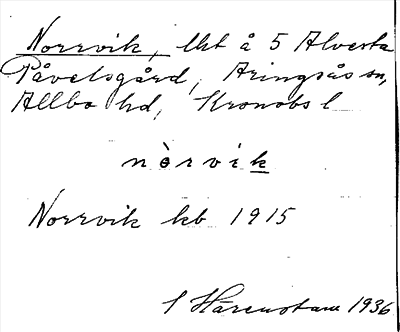 Norrvik, lht å 5 Alvesta
Påvelsgård, Aringsås sn,
Allbo hd, Kronobs l
nòrvik
Norrvik kb 1915
S Härenstam 1936